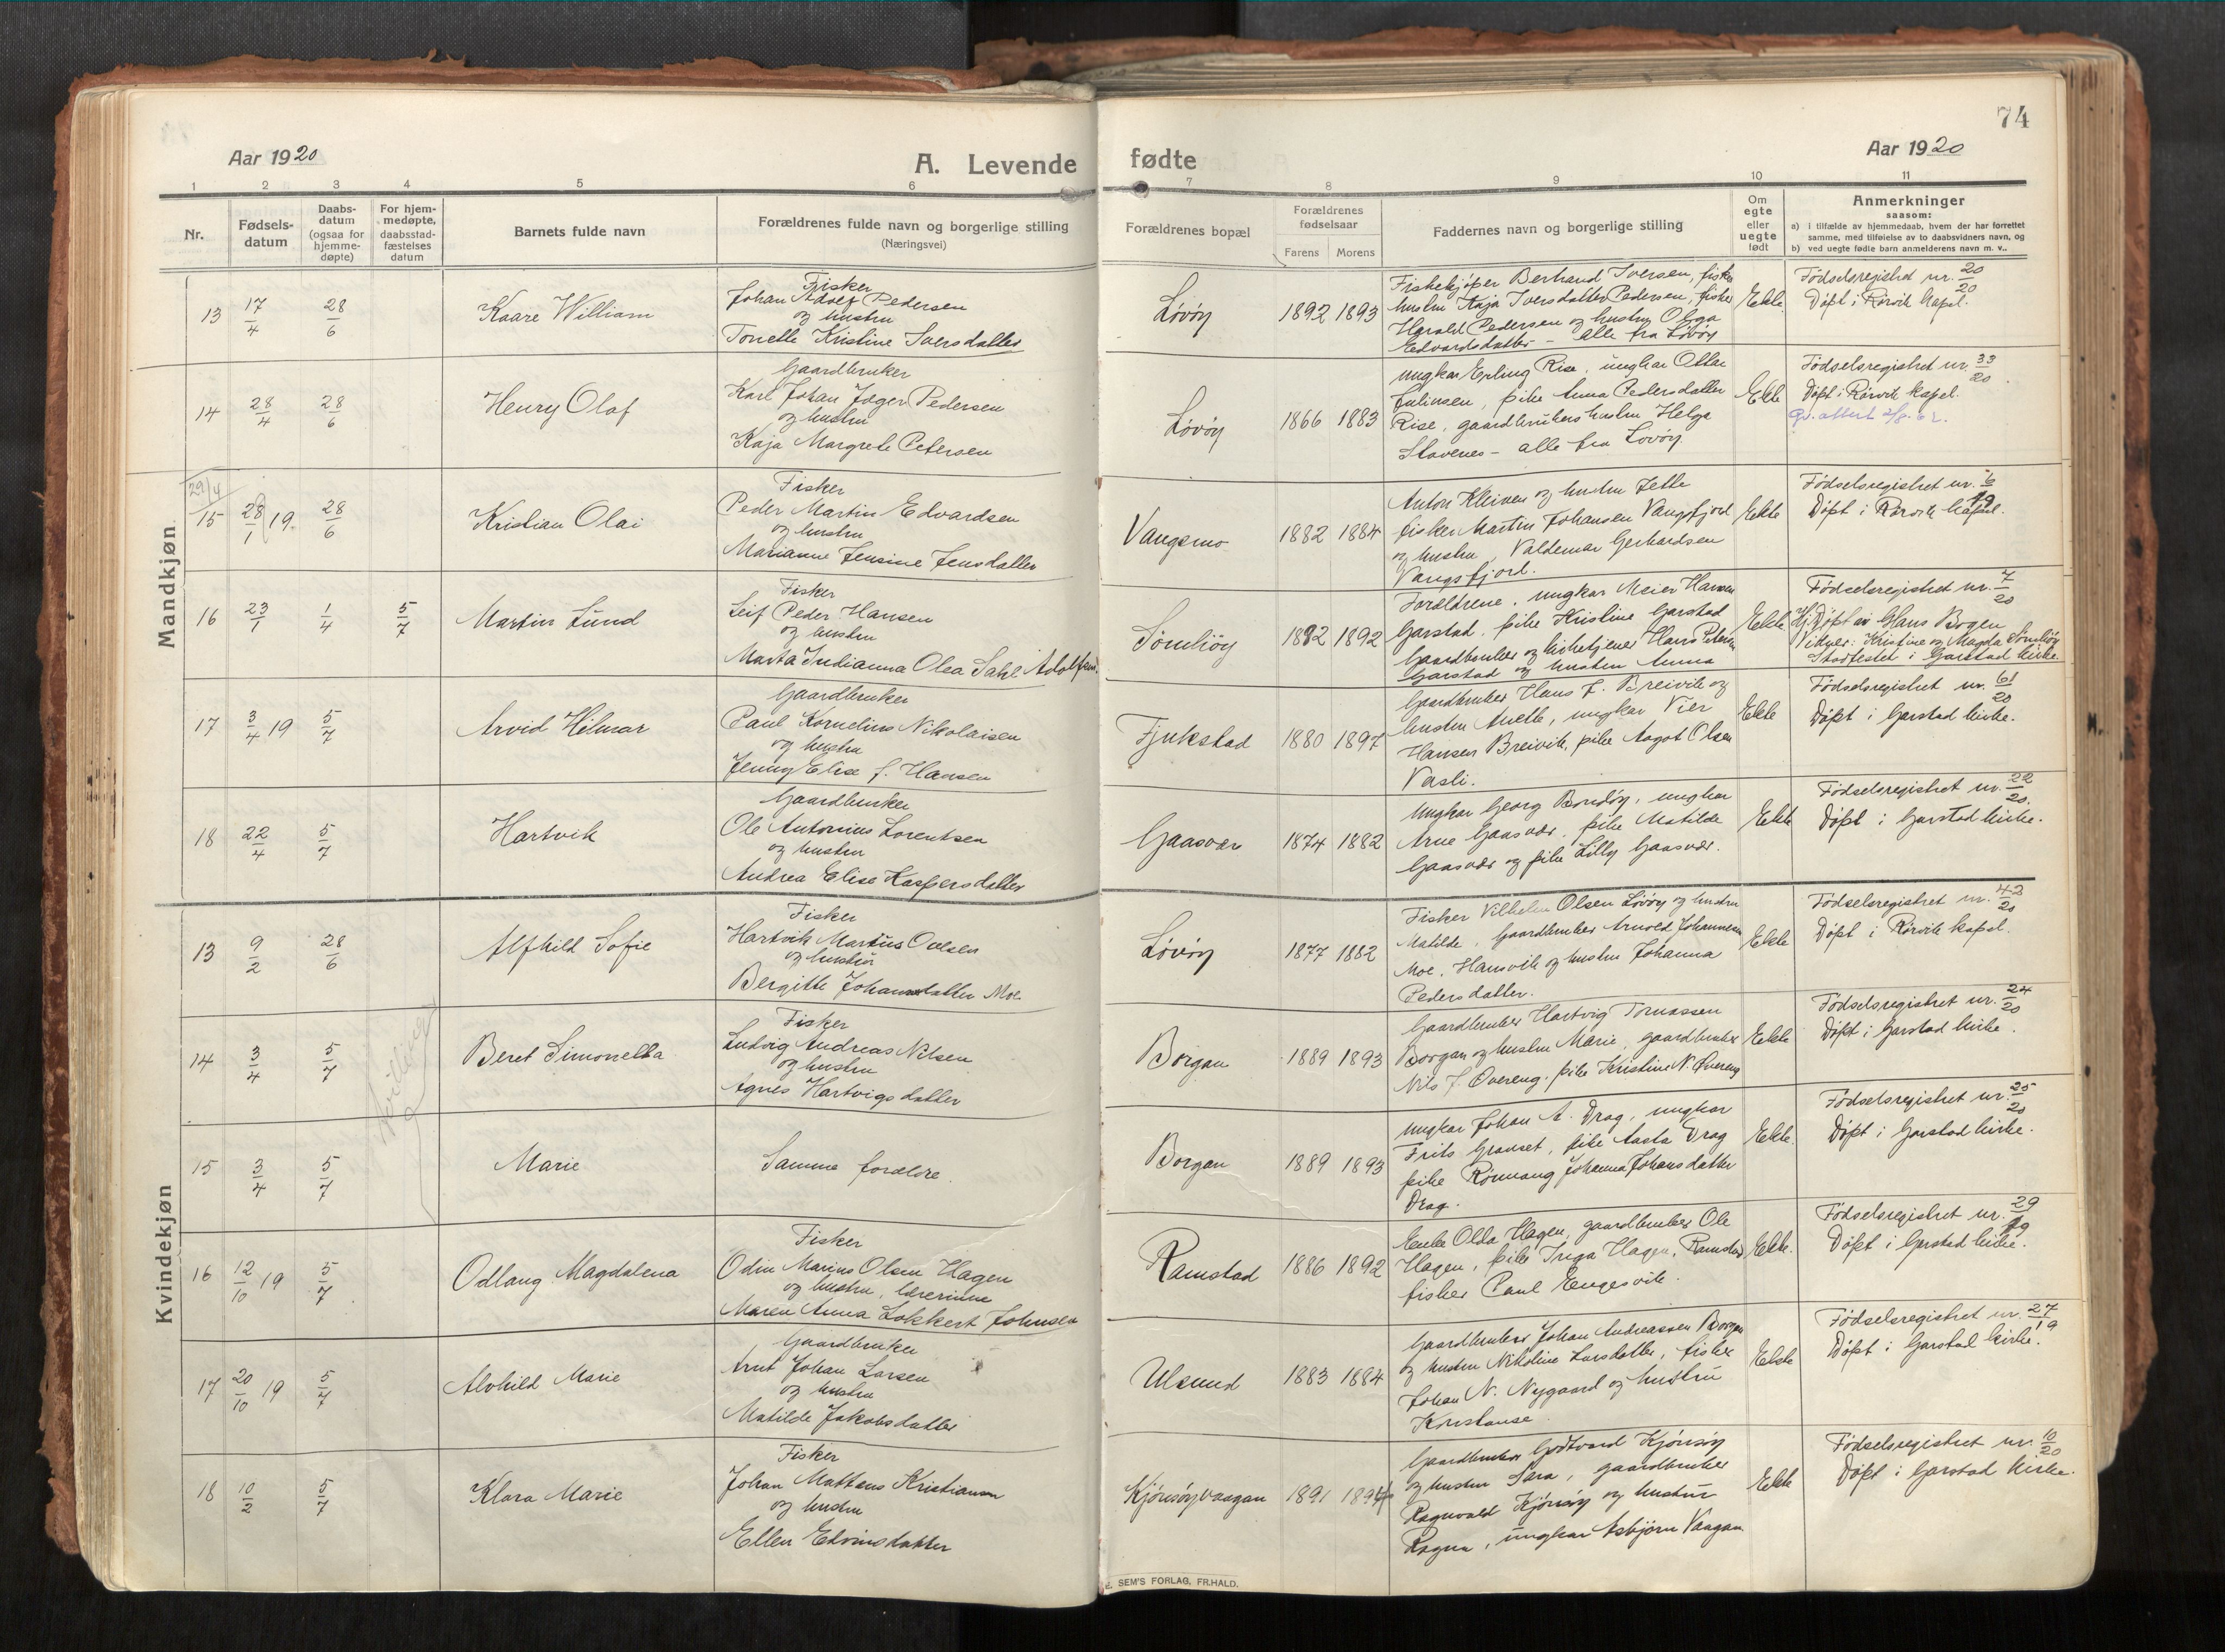 74
Aar 1920
A. Levende
fødte
Aar 1920
1 2 3 4 5 6 7 8 9 10 11
Nr.
Fødsels-
datum
Daabs-
datum
(ogsaa for
hjemme-
døpte)
For hjem-
medøpte,
daabsstad-
fæstelses
datum
Barnets fulde navn
Forældrenes fulde navn og borgerlige stilling
(Næringsvei)
Forældrenes bopæl
Forældrenes
fødselsaar
Farens Morens
Faddernes navn og borgerlige stilling
Om
egte
eller
uegte
født
Anmerkninger
saasom:
a) i tilfælde av hjemmedaab, hvem der har forrettet
samme, med tilføielse av to daabsvidners navn, og
b) ved uegte fødte barn anmelderens navn m. v..
Mandkjøn
13 17/4 28/6 Kaare William
Fisker
Johan Adolf Pedersen
og hustru
Tonette Kristine Iversdatter
Løvøy 1892 1893
Fiskekjøper Bernhard Iversen, fisker
hustru Kaja Iversdatter Pedersen, fisker
Harald Pedersen og hustru Olga
Edvardsdatter – alle fra Løvøy
Ekte
Fødselsregistret nr. 20/20
Døpt i Rørvik kapel.
14 28/4 28/6 Henry Olaf
Gaardbruker
Karl Johan Jæger Pedersen
og hustru
Kaja Margrete Petersen
Løvøy 1866 1883
ungkar Erling Rise, ungkar Ottar
Julinsen, pike Anna Pedersdatter
Rise, gaardbrukers hustru Helga
Stavenes – alle fra Løvøy
Ekte
Fødselsregistret nr. 33/20
Døpt i Rørvik kapel.
29/4
15 28/1 19. 28/6 Kristian Olai
Fisker
Peder Martin Edvardsen
og hustru
Marianne Jensine Jensdatter
Vangsmo 1882 1884
Anton Kleiven og hustru Jette
fisker Martin Johansen Vangsfjord
og hustru, Valdemar Gerhardsen
Vangsfjord.
Ekte
Fødselsregistret nr. 6/19
Døpt i Rørvik kapel.
16 23/1 1/4 5/7 Martin Lund
Fisker
Leif Peder Hansen
og hustru
Marta Indianna Olea Dahl Adolfsen.
Sømliøy 1892 1892
Forældrene, ungkar Meier Hansen
Garstad, pike Kristine Garstad
Gaardbruker og kirketjener Hans Petersen
Garstad og hustru Anna
Ekte
Fødselsregistret nr. 7/20
Hj. Døpt av Hans Bogen
Vidner: Kristine og Magda Sømliøy
Stadfestet i Garstad kirke
17 3/4 19 5/7 Arvid Hilmar
Gaardbruker
Paul Kornelius Nikolaisen
og hustru
Jenny Elise f. Hansen
Fjukstad 1880 1897
Gaardbruker Hans J. Breivik og
hustru Anette, ungkar Vier
Hansen Breivik, pike Aagot Olsen
Vasli.
Ekte
Fødselsregistret nr. 61/20
Døpt i Garstad kirke.
18 22/4 5/7 Hartvik
Gaardbruker
Ole Antonius Lorentsen
og hustru
Andrea Elise Kaspersdatter
Gaasvær 1874 1882
Ungkar Georg Bondøy, ungkar
Arne Gaasvær, pike Matilde
Gaasvær og pike Lilly Gaasvær.
Ekte
Fødselsregistret nr. 22/20.
Døpt i Garstad kirke.
Kvindekjøn
13 9/2 28/6 Alfhild Sofie
Fisker
Hartvik Martius Olsen
og hustru
Bergitte Johannesdatter Moe.
Løvøy 1877 1882
Fisker Vilhelm Olsen Løvøy og hustru
Matilde, gaardbruker Arnold Johannesen
Moe, Hansvik og hustru Johanna
Pedersdatter.
Ekte
Fødselsregistret nr. 42/20
Døpt i Rørvik kapel.
14 3/4 5/7 Beret Simonetta
Fisker
Ludvig Andreas Nilsen
og hustru
Agnes Hartvigsdatter
Borgan 1889 1893
Gaardbruker Hartvig Tomassen
Borgan og hustru Marie, gaardbruker
Nils J. Øvereng, pike Kristine N. Øvereng
Ekte
Fødselsregistret nr. 24/20
Døpt i Garstad kirke.
Tvillinger
15 3/4 5/7 Marie
Samme forældre.
Borgan 1889 1893
ungkar Johan A. Drag, ungkar
Frits Granset, pike Aasta Drag
pike Rønnaug Johanna Johansdatter
Drag.
Ekte.
Fødselsregistret nr. 25/20
Døpt i Garstad kirke.
16 12/10 19 5/7 Odlaug Magdalena
Fisker
Odin Marius Olsen Hagen
og hustru, lærerinne
Maren Anna Lokkert Johnsen
Ramstad 1886 1892
Enke Olda Hagen, gaardbruker Ole
Hagen, pike Inga Hagen, Ramstad
fisker Paul Engesvik.
Ekte.
Fødselsregistret nr. 29/19
Døpt i Garstad kirke.
17 20/10 19 5/7 Alvhild Marie
Gaardbruker
Arnt Johan Larsen
og hustru
Matilde Jakobsdatter
Ulsund 1883 1884
Gaardbruker Johan Andreassen Borgan
og hustru Nikoline Larsdatter, fisker
Johan N. Nygaard og hustru
Konstanse.
Ekte
Fødselsregistret nr. 27/19
Døpt i Garstad kirke.
18 10/2 5/7 Klara Marie
Fisker
Johan Mattæus Kristiansen
og hustru
Ellen Edvinsdatter
Kjønsøyvaagan 1891 1894
Gaardbruker Godtvard Kjønsøy
og hustru Sara, gaardbruker
Ragnvald Kjønsøy og hustru
Ragna, ungkar Asbjørn Vaagan
Ekte
Fødselsregistret nr. 10/20
Døpt i Garstad kirke.
E. SEM'S FORLAG, FR.HALD.